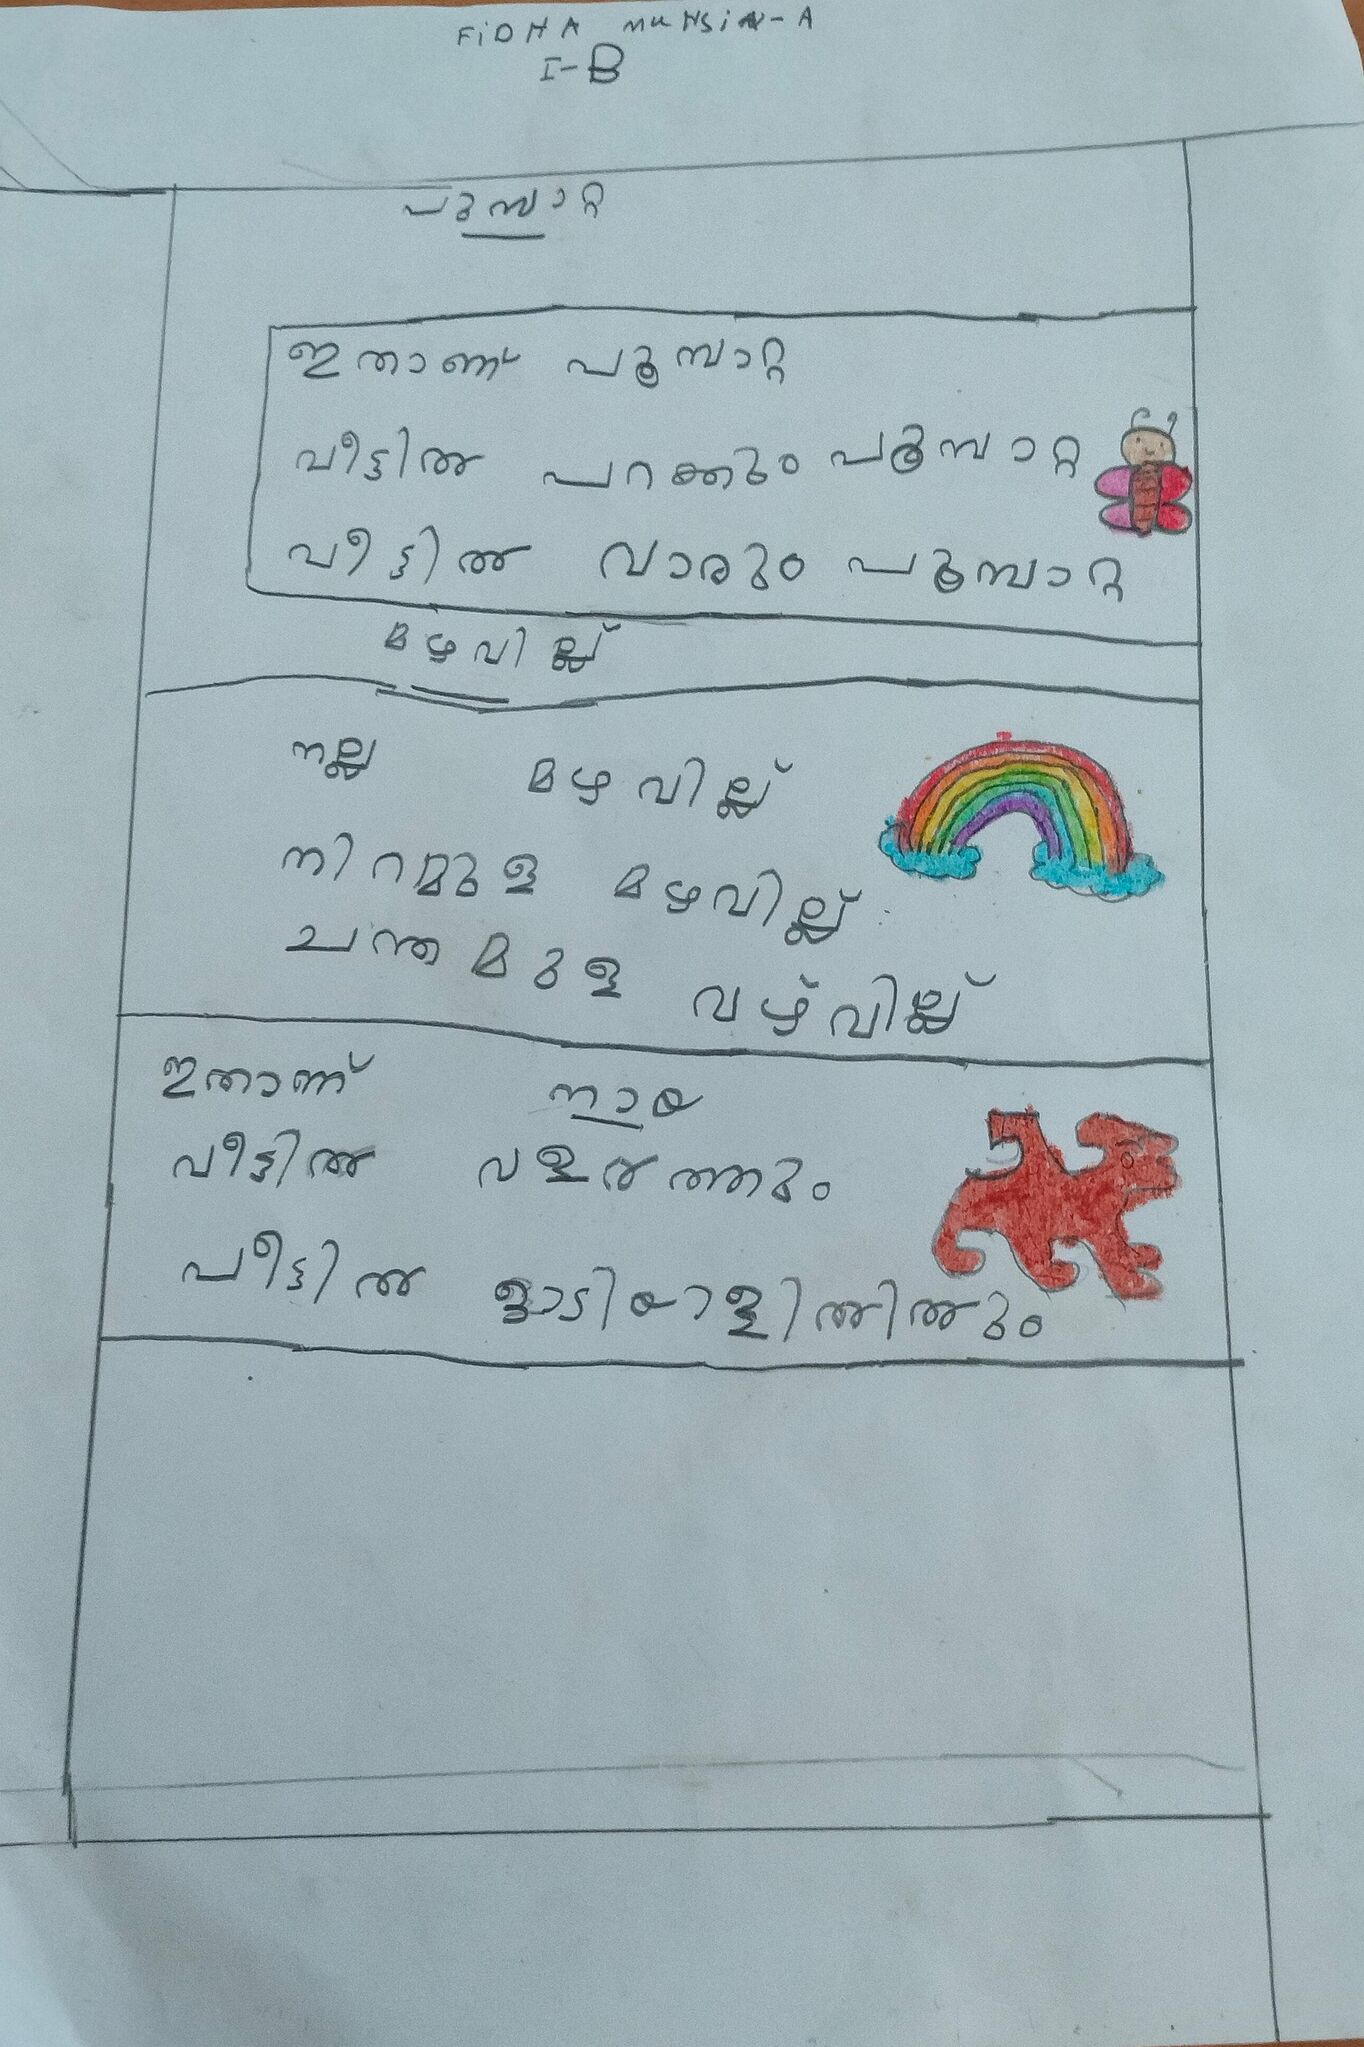 FiDHA MUHSiN-A
I-B
പൂമ്പാറ്റ
ഇതാണ് പൂമ്പാറ്റ
വീട്ടിൽ പറക്കും പൂമ്പാറ്റ
വീട്ടിൽ വാരും പൂമ്പാറ്റ
മഴവില്ല്
നല്ല മഴവില്ല്
നിറമുള മഴവില്ല്
ചന്തമുള വഴ്വില്ല്
ഇതാണ് നായ
വീട്ടിൽ വളർത്തും
പീട്ടിൽ